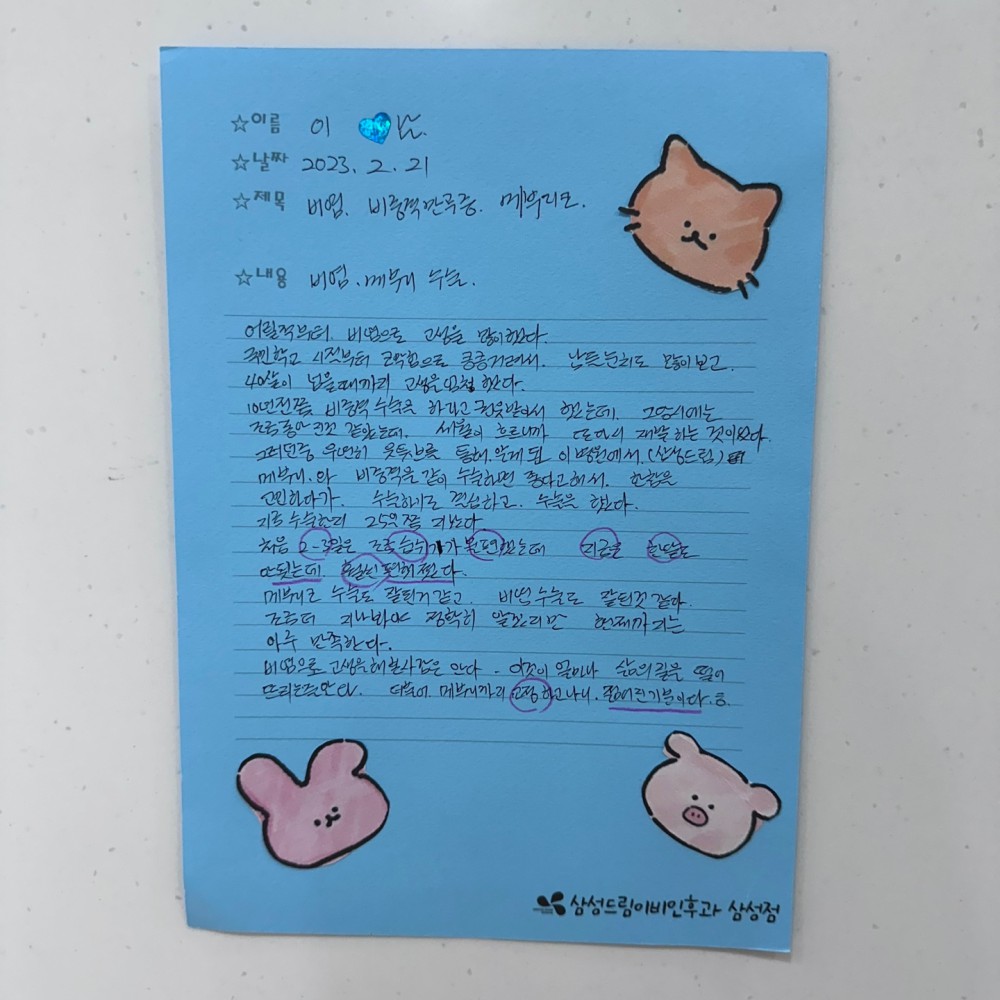 ☆이름 이
☆날짜 2023. 2. 21
☆제목 비염. 비중격만곡증. 매부리코.
☆내용 비염. 매부리 수술.
어릴적부터. 비염으로 고생을 많이했다.
국민학교 시절부터 코막힘으로 킁킁거려서. 남들 눈치도 많이 보고.
40살이 넘을때까지 고생을 엄청 했다.
10년전쯤 비중격 수술을 하라고 권유받아서 했는데. 그당시에는
조금 좋아진것 같았는데. 세월이 흐르니까 또다시 재발하는 것이었다.
그러던중 우연히 유튜브를 통해 알게 된 이병원에서. (삼성드림)
매부리. 와 비중격을 같이 수술하면 좋다고해서. 한참을
고민하다가. 수술하기로 결심하고. 수술을 했다.
지금 수술한지 25일쯤 지났다
처음 2-3일은 조금 숨쉬기가 불편했는데 지금은 한달도
안됐는데. 훨씬 편해졌다.
매부리코 수술도 잘된거 같고. 비염수술도 잘된것 같다.
조금더 지나봐야 정확히 알겠지만 현재까지는
아주 만족한다.
비염으로 고생을해본사람은 안다. 이것이 얼마나 삶의질을 떨어
뜨리는줄안다. 더불어 매부리까지 교정하고나니. 젊어진기분이다.
삼성드림이비인후과 삼성점